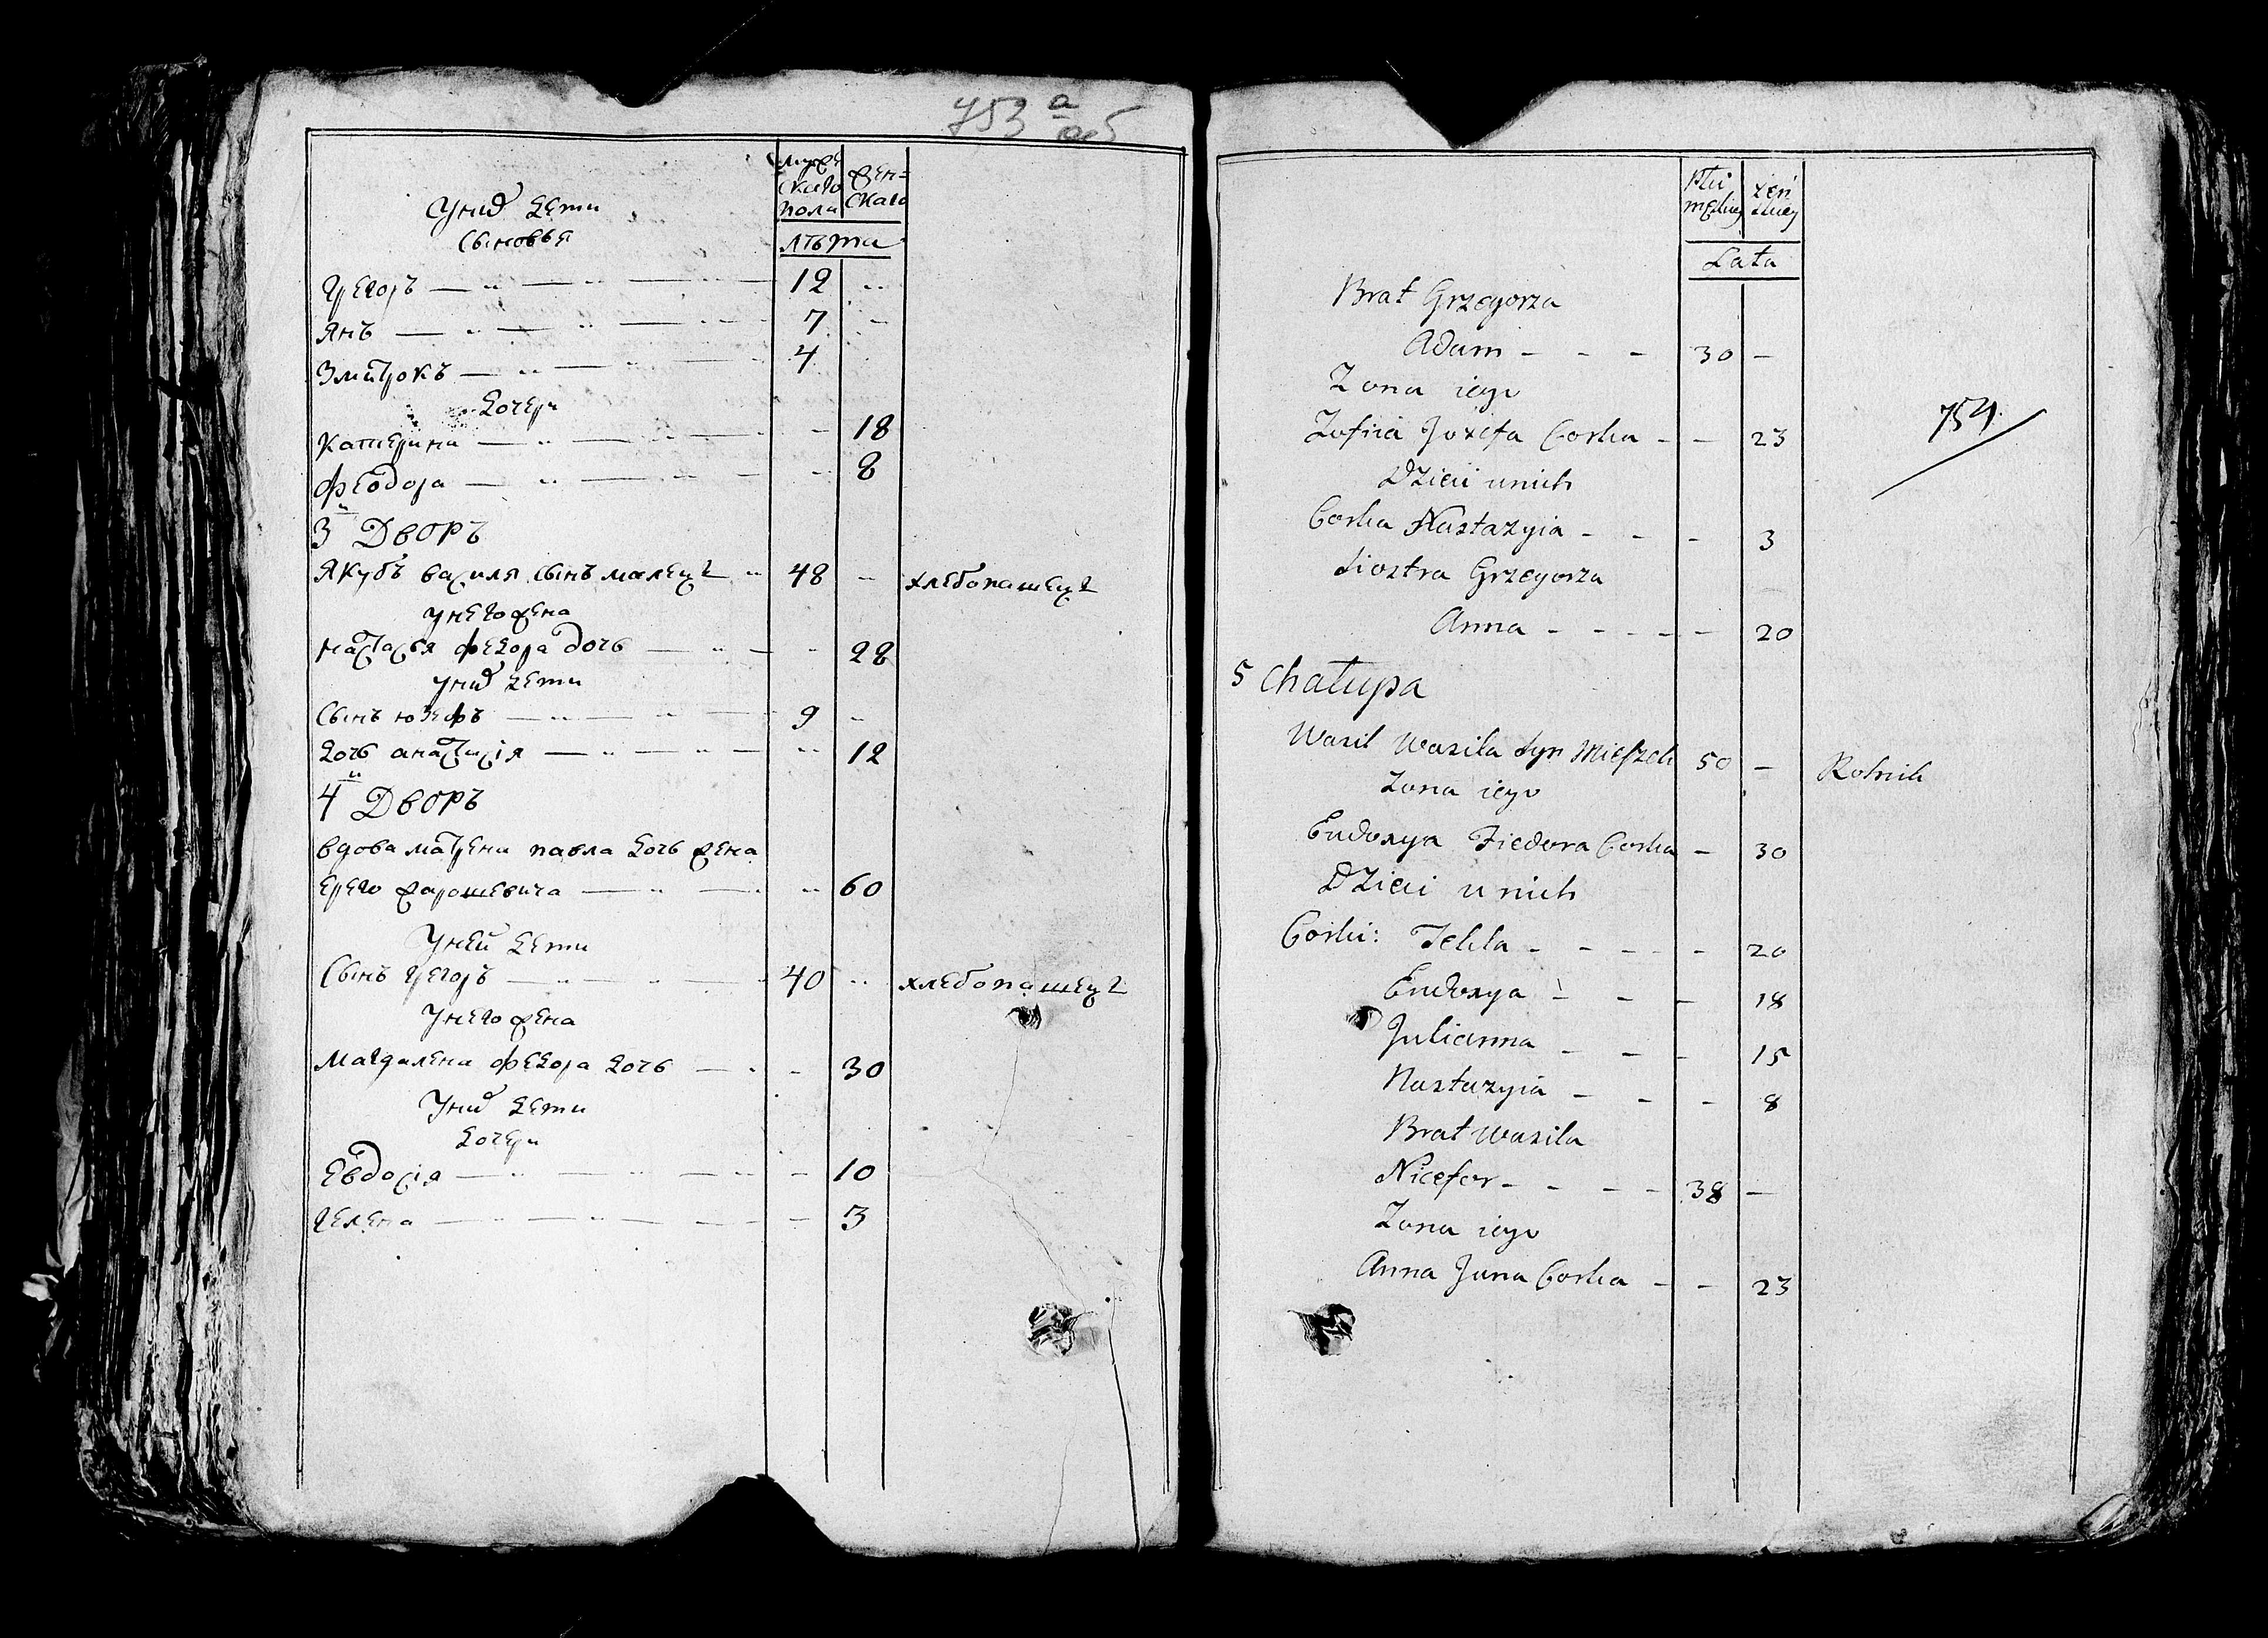 753 а
об
Мужескаго пола
женскаго
лѣта
У них дети
Сыновья
Грегоръ — 12
Янъ — 7
Змитрокъ — 4
Дочери
Катерина — 18
Феодора — 8
3й Дворъ
Якубъ Василя сынъ Малецъ 48 хлебопашецъ
у него жена
Настасья Федора дочь — 28
у них дети
Сынъ Юзефъ — 9
Дочь Анастасія — 12
4й Дворъ
Вдова Матрена Павла дочь жена
60
У ней дети
Сынъ Грегоръ — 40 хлебопашецъ
У него жена
Магдалена Федора дочь — 30
У них дети
Дочери
Евдосія — 10
Гелена — 3
Płci męzkiey
żeńskiey
Lata
Brat Grzegorza
Adam - - - 30 -
Zona iego
Zofiia Jozefa Corka - - 23
754
Dzieci u nich
Corka Nastazyia - - - 3
Siostra Grzegorza
Anna - - - - - 20
5 Chałupa
Wasil Wasila Syn 50 - Rolnik
Zona iego
Eudoxya Fiedora Corka - 30
Dzieci u nich
Corki: Tekla - - - - - 20
Eudoxya - - - 18
Julianna - - - 15
Nastazyia - - - 8
Brat Wasila
Nicefor - - - - 38 -
Zona iego
Anna Jana Corka - - 23